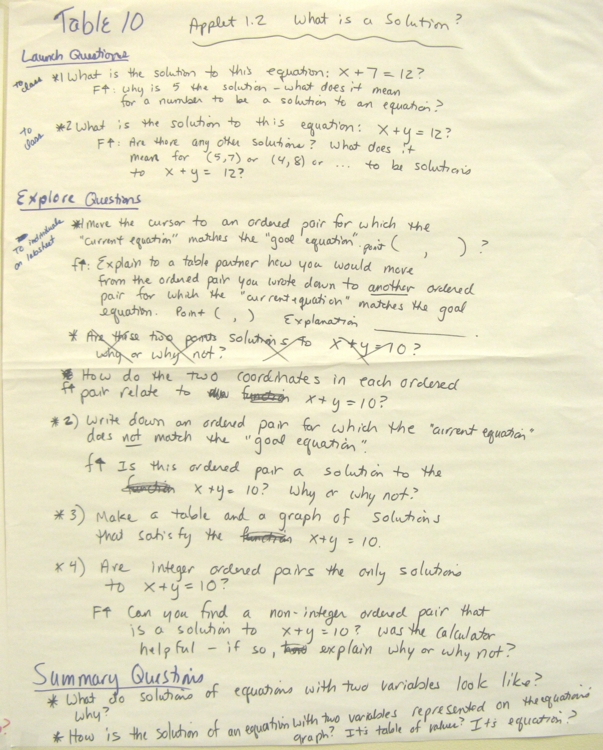 Table 10
Applet 1.2 What is a Solution?
Launch Questions
To class
*1 What is the solution to this equation: x + 7 = 12?
F↑: why is 5 the solution - what does it mean
for a number to be a solution to an equation?
To class
*2 What is the solution to this equation: x + y = 12?
F↑: Are there any other solutions? What does it
mean for (5,7) or (4,8) or ... to be solutions
to x + y = 12?
Explore Questions
To individuals
on labsheet
*1 Move the cursor to an ordered pair for which the
"current equation" matches the "goal equation". point ( , ) ?
f↑: Explain to a table partner how you would move
from the ordered pair you wrote down to another ordered
pair for which the "current equation" matches the goal
equation. Point ( , ) Explanation ________.
* Are these two points solutions to x + y = 10?
why or why not?
* How do the two coordinates in each ordered
f↑ pair relate to the function x + y = 10?
*2) Write down an ordered pair for which the "current equation"
does not match the "goal equation".
f↑ Is this ordered pair a solution to the
function x + y = 10? Why or why not?
*3) Make a table and a graph of solutions
that satisfy the function x + y = 10.
*4) Are Integer ordered pairs the only solutions
to x + y = 10?
F↑ Can you find a non-integer ordered pair that
is a solution to x + y = 10? was the calculator
helpful - if so, explain why or why not?
Summary Questions
* What do solutions of equations with two variables look like?
Why?
* How is the solution of an equation with two variables represented on the equations
graph? It's table of value? It's equation?